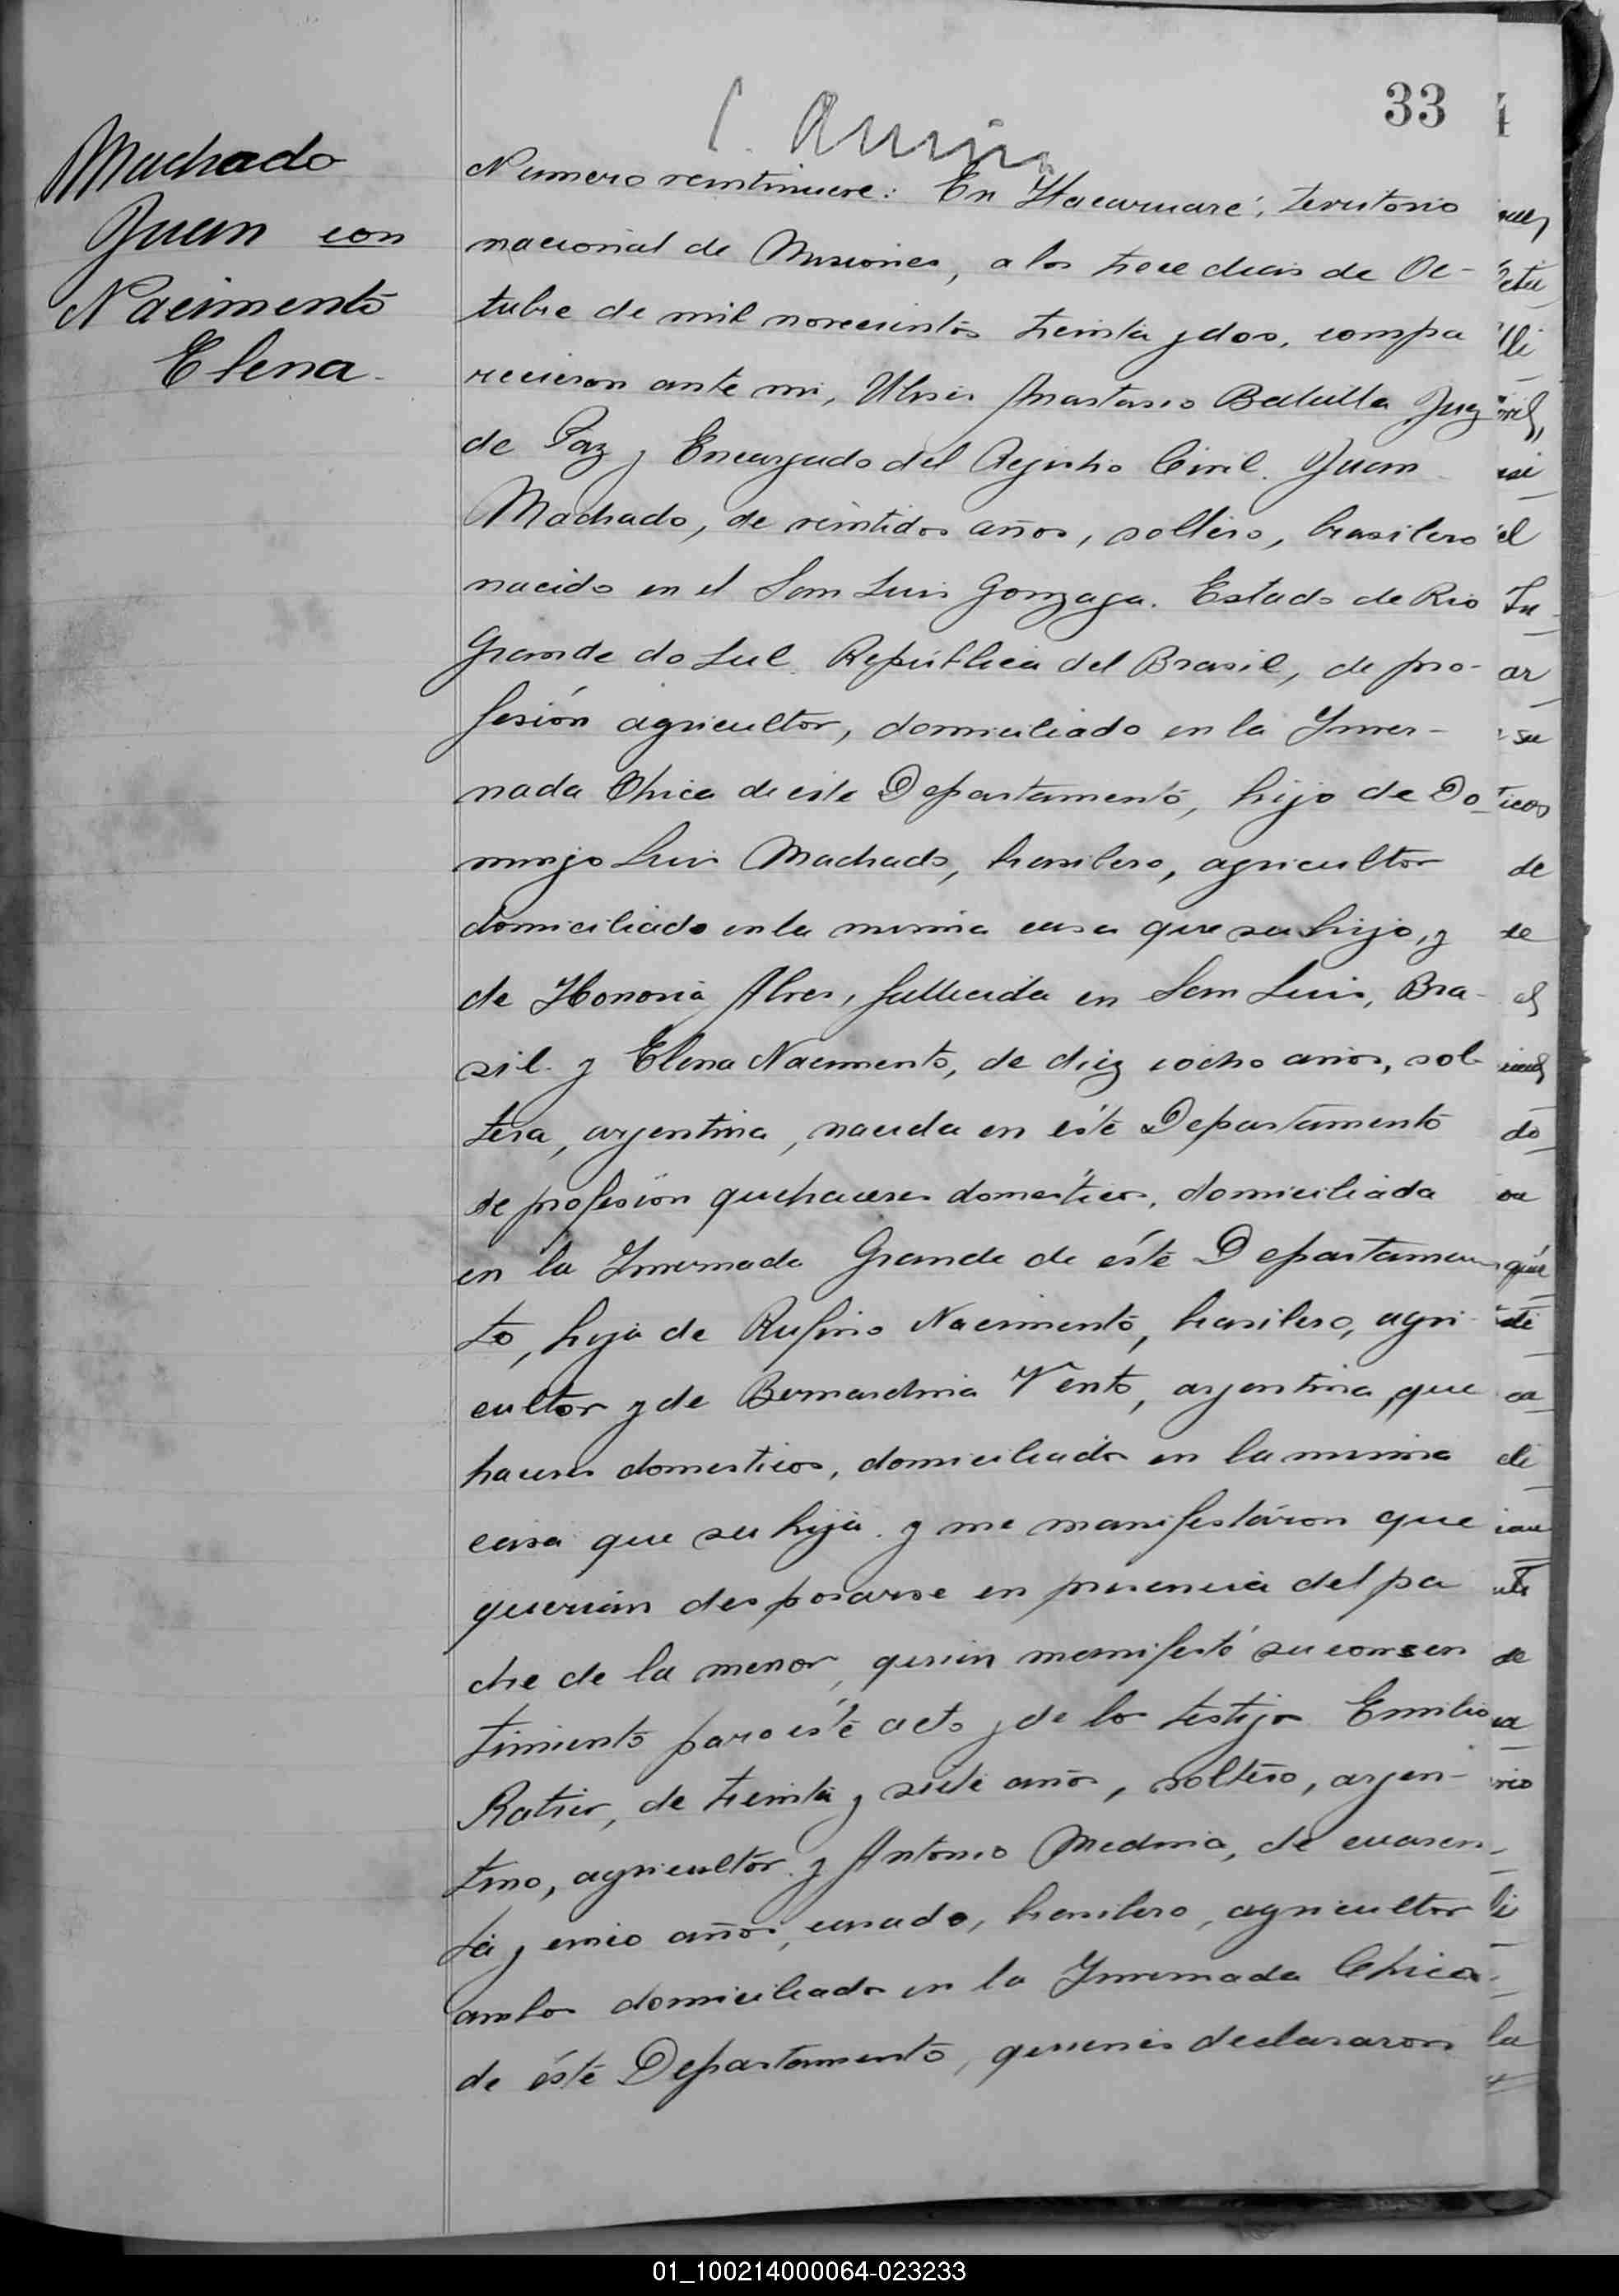 33
Machado
Juan con
Nacimento
Elena.
Numero veintinueve: En Itacaruaré, territorio
nacional de Misiones, a los trece dias de Oc-
tubre de mil novecientos treinta y dos, compa
recieron ante mi, Ulises Anastasio Balulla Juez
de Paz y Encargado del Registro Civil. Juan
Machado, de veintidos años, soltero, brasilero
nacido en el Sam Luis Gonzaga. Estado de Rio
Grande do Sul. República del Brasil, de pro-
fesión agricultor, domiciliado en la Inver-
nada Chica de este Departamento, hijo de Do
mingo Luis Machado, brasilero, agricultor
domiciliado en la misma casa que su hijo, y
de Honoria Alves, fallecida en Sam Luis, Bra-
sil. y Elena Nacimento, de diez iocho años, sol-
tera, argentina, nacida en éste Departamento
de profesion quehaceres domésticos, domiciliada
en la Invernada Grande de éste Departamen
to, hija de Rufino Nacimento, brasilero, agri-
cultor y de Bernardina Vento, argentina, que
haceres domesticos, domiciliados en la misma
casa que su hija. y me manifestáron que
querian desposarse en presencia del pa
dre de la menor, quien manifestó su consen
timiento para éste acto y de los testigos Emilio
Ratier, de treinta y siete años, soltero, argen-
tino, agricultor. y Antonio Medina, de cuaren
ta y cinco años, casado, brasilero, agricultor
ambos domiciliados en la Invernada Chica
de éste Departamento, quienes declararon
01_100214000064-023233